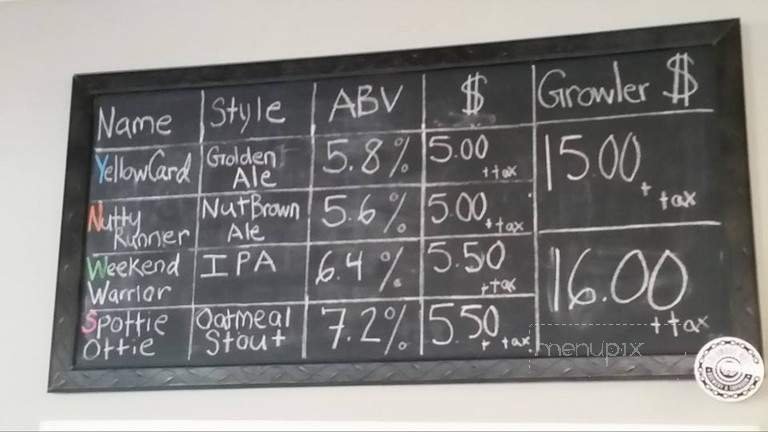 Name Style ABV $ Growler $
YellowCard Golden Ale 5.8% 5.00 + tax 15.00 + tax
Nutty Runner Nut Brown Ale 5.6% 5.00 + tax
Weekend Warrior IPA 6.4% 5.50 + tax 16.00 + tax
Spottie Ottie Oatmeal Stout 7.2% 5.50 + tax
menupix